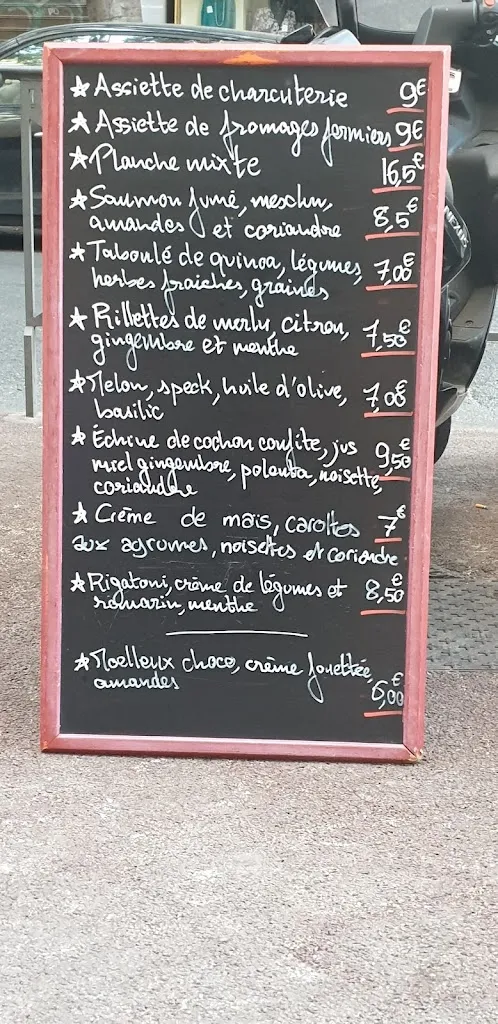 ★ Assiette de charcuterie 9€
★ Assiette de fromages fermiers 9€
★ Planche mixte 16,5€
★ Saumon fumé, mesclun, 8,5€
amandes et coriandre
★ Taboulé de quinoa, légumes, 7,00€
herbes fraiches, graines
★ Rillettes de merlu, citron, 7,50€
gingembre et menthe
★ Melon, speck, huile d'olive, 7,00€
basilic
★ Échine de cochon confite, jus 9,50€
miel gingembre, polenta, noisette,
coriandre
★ Crème de maïs, carottes 7€
aux agrumes, noisettes et coriandre
★ Rigatoni, crème de légumes et 8,50€
romarin, menthe
★ Moelleux choco, crème fouettée, 6,00€
amandes